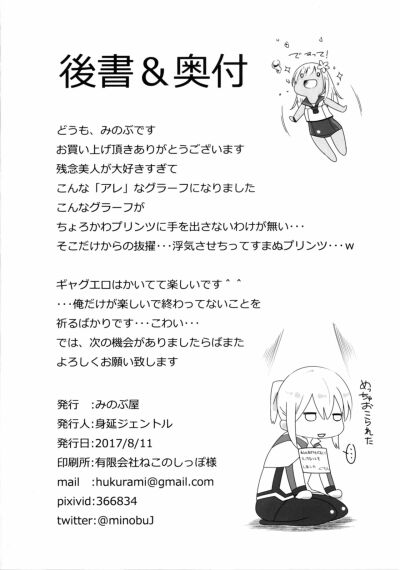 後書＆奥付
でべって!
どうも、みのぶです
お買い上げ頂きありがとうございます
残念美人が大好きすぎて
こんな「アレ」なグラーフになりました
こんなグラーフが
ちょろかわプリンツに手を出さないわけが無い･･･
そこだけからの抜擢･･･浮気させちってすまぬプリンツ･･･ｗ
ギャグエロはかいてて楽しいです＾＾
･･･俺だけが楽しいで終わってないことを
祈るばかりです･･･こわい･･･
では、次の機会がありましたらばまた
よろしくお願い致します
めっちゃおこられた
･･･
発行　:みのぶ屋
発行人:身延ジェントル
発行日:2017/8/11
印刷所:有限会社ねこのしっぽ様
mail　:hukurami@gmail.com
pixivid:366834
twitter:@minobuJ